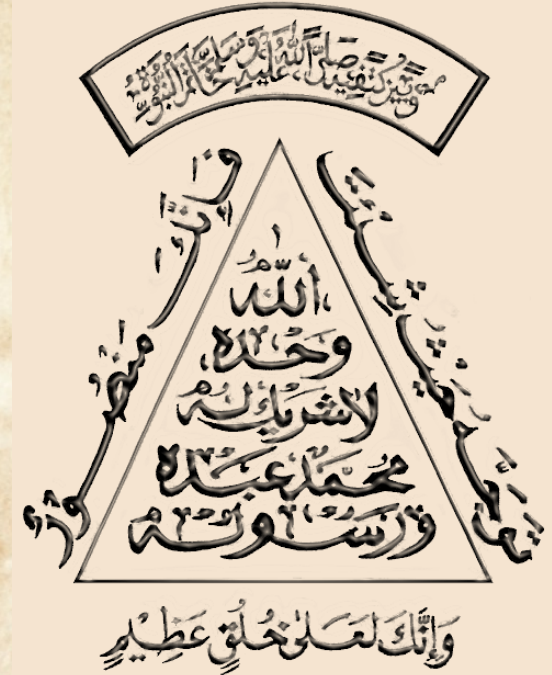 صلى الله عليه وسلم خاتم النبوة
الله
وحده
لا شريك له
محمد عبده
ورسوله
حيث
فإنك منصور
وَإِنَّكَ لَعَلىٰ خُلُقٍ عَظِيْمٍ